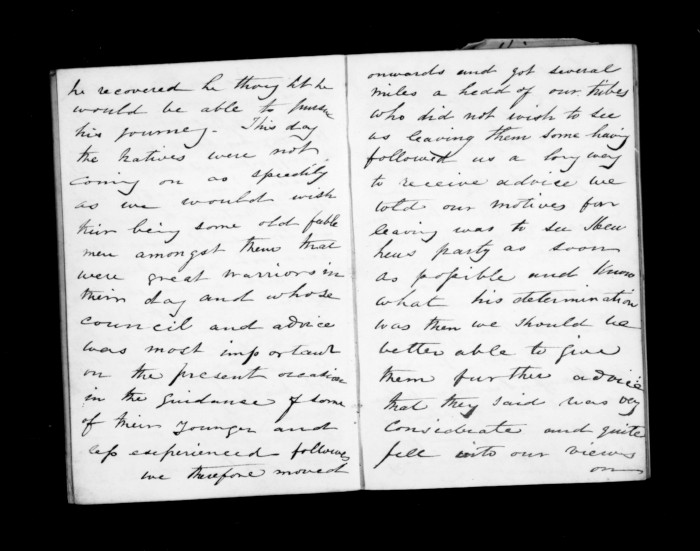 he recovered he thought he
would be able to pursue
his journey. This day
the Natives were not
coming on as speedily
as we would wish
their being some old feable
men amongst them that
were great warriors in
their day and whose
council and advice
was most important
on the present occasion
in the guidanse of some
of their younger and
less experienced followers
we therefore moved
onwards and got several
miles a hedd of our tribes
who did not wish to see
us leaving them some having
followed us a long way
to receive advice we
told our motives for
leaving was to see Heu
heus party as soon
as possible and know
what his determination
was then we should be
better able to give
them further advice
that they said was very
considerate and quite
fell into our views
on